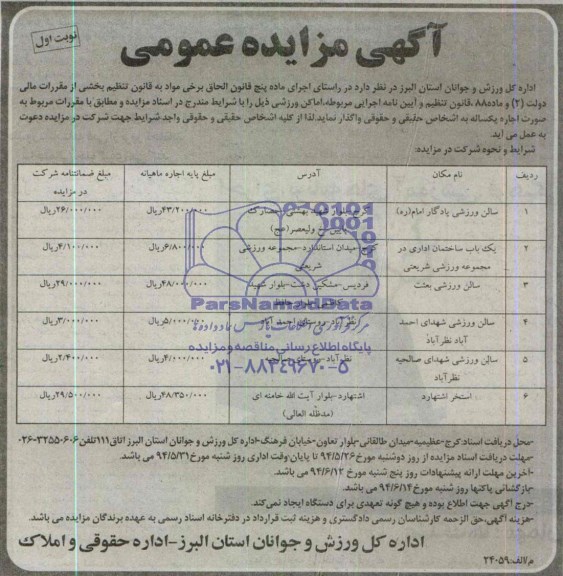 آگهی مزایده عمومی
نوبت اول
اداره کل ورزش و جوانان استان البرز در نظر دارد در راستای اجرای ماده پنج قانون الحاق برخی مواد به قانون تنظیم بخشی از مقررات مالی
دولت (۲) و ماده۸۸ ،قانون تنظیم و آیین نامه اجرایی مربوطه،اماکن ورزشی ذیل را با شرایط مندرج در اسناد مزایده و مطابق با مقررات مربوط به
صورت اجاره یکساله به اشخاص حقیقی و حقوقی واگذار نماید.لذا از کلیه اشخاص حقیقی و حقوقی واجد شرایط جهت شرکت در مزایده دعوت
به عمل می آید.
شرایط و نحوه شرکت در مزایده:
ردیف نام مکان آدرس مبلغ پایه اجاره ماهیانه مبلغ ضمانتنامه شرکت در مزایده
۱ سالن ورزشی یادگار امام(ره) کرج-بلوار شهید بهشتی- ولیعصر(عج) ۴۳/۲۰۰/۰۰۰ریال ۲۶/۰۰۰/۰۰۰ریال
۲ یک باب ساختمان اداری در مجموعه ورزشی شریعتی کرج-میدان استاندارد-مجموعه ورزشی شریعتی ۶/۸۰۰/۰۰۰ریال ۴/۱۰۰/۰۰۰ریال
۳ سالن ورزشی بعثت فردیس-مشکین دشت-بلوار شهید ۴۸/۰۰۰/۰۰۰ریال ۲۹/۰۰۰/۰۰۰ریال
۴ سالن ورزشی شهدای احمد آباد نظرآباد ۵/۰۰۰/۰۰۰ریال ۳/۰۰۰/۰۰۰ریال
۵ سالن ورزشی شهدای صالحیه نظرآباد نظرآباد-روستای صالحیه ۴/۰۰۰/۰۰۰ریال ۲/۴۰۰/۰۰۰ریال
۶ استخر اشتهارد اشتهارد-بلوار آیت الله خامنه ای (مدظله العالی) ۴۸/۳۵۰/۰۰۰ریال ۲۹/۵۰۰/۰۰۰ریال
ParsNamadData
پایگاه اطلاع رسانی مناقصه و مزایده
۰۲۱-۸۸۳۴۹۶۷۰-۵
-محل دریافت اسناد:کرج-عظیمیه-میدان طالقانی-بلوار تعاون-خیابان فرهنگ-اداره کل ورزش و جوانان استان البرز اتاق۱۱۱تلفن۳۲۵۵۰۶۰۶-۰۲۶
-مهلت دریافت اسناد مزایده از روز دوشنبه مورخ۹۴/۵/۲۶ تا پایان وقت اداری روز شنبه مورخ۹۴/۵/۳۱ می باشد.
-آخرین مهلت ارائه پیشنهادات روز پنج شنبه مورخ ۹۴/۶/۱۲ می باشد.
-بازگشائی پاکتها روز شنبه مورخ۹۴/۶/۱۴ می باشد.
-درج آگهی جهت اطلاع بوده و هیچ گونه تعهدی برای دستگاه ایجاد نمی‌کند.
-هزینه آگهی،حق الزحمه کارشناسان رسمی دادگستری و هزینه ثبت قرارداد در دفترخانه اسناد رسمی به عهده برندگان مزایده می باشد.
اداره کل ورزش و جوانان استان البرز-اداره حقوقی و املاک
م/الف:۲۴۰۵۹